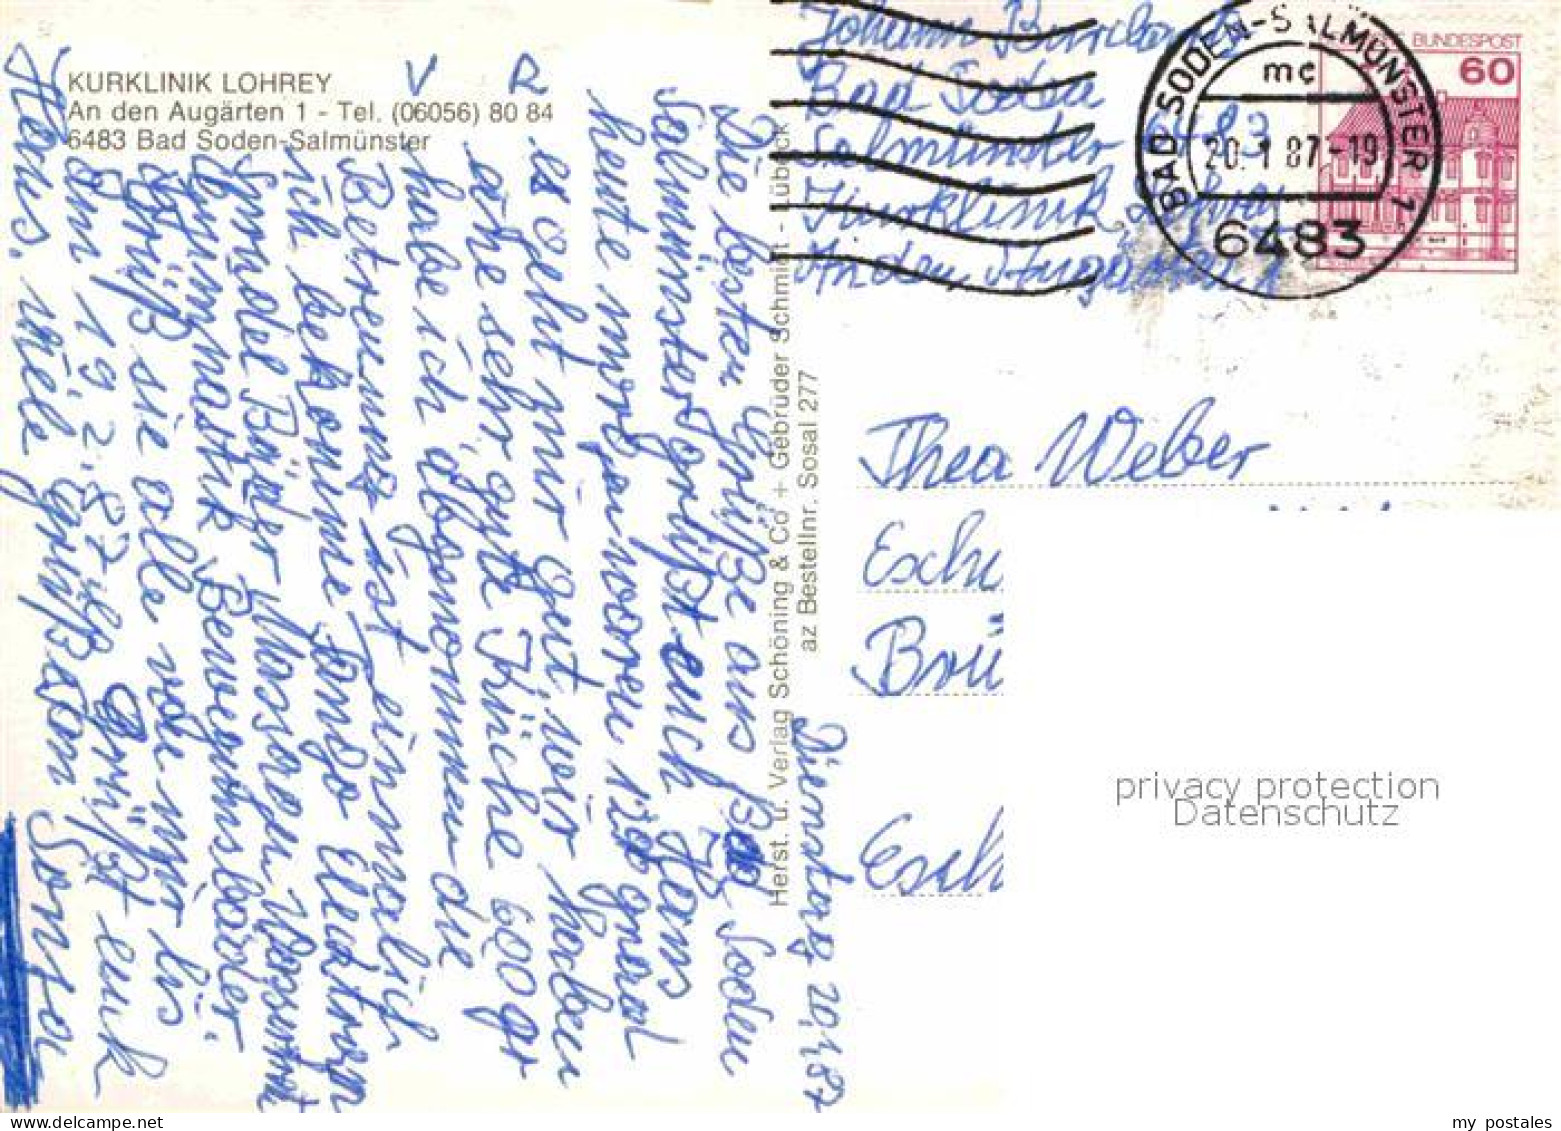 KURKLINIK LOHREY
An den Augärten 1 - Tel. (06056) 80 84
6483 Bad Soden-Salmünster
V R
Dienstag 20,1,87
Die besten Grüße aus Bad Soden
Salmünster grüßt euch Hans
heute
es geht mir gut, wir haben
sehr gute Küche 600 gr
habe ich abgenommen die
Betreuung ist einmalich
ich bekomme Fango Elecktrogn
Sprudel Bäder Masagen
Gymnastik Bewegunsbäder.
Grüß sie alle von mir bis
am 19.2.87 Grüßt euch
Hans. viele grüße an
Herst. u. Verlag Schöning & Co + Gebrüder Schmidt - Lübeck
az Bestellnr. Sosal 277
Johann
Bad Soden
Salmünster 6483
Kurklinik Lohrey
An den Augärten 1
BAD SODEN-SALMÜNSTER 1
mc
20.1.87-19
6483
BUNDESPOST
60
Thea Weber
Eschw
Brü
Esch
privacy protection
Datenschutz
my postales